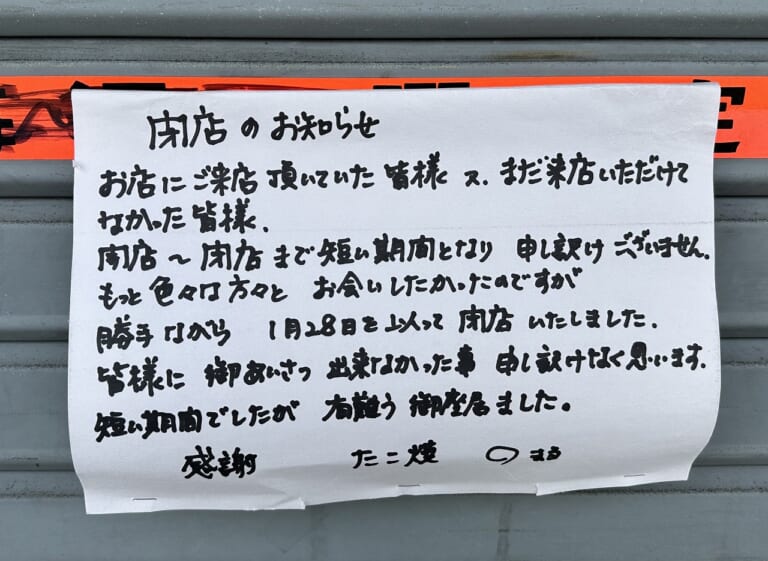 閉店のお知らせ
お店にご来店頂いていた皆様 又、まだ来店いただけて
なかった皆様、
開店〜閉店まで短い期間となり 申し訳けございません。
もっと色々な方々と お会いしたかったのですが
勝手ながら 1月28日を以って閉店いたしました。
皆様に 御あいさつ 出来なかった事 申し訳けなく思います。
短い期間でしたが 有難う御座居ました。
感謝 たこ焼 〇まる